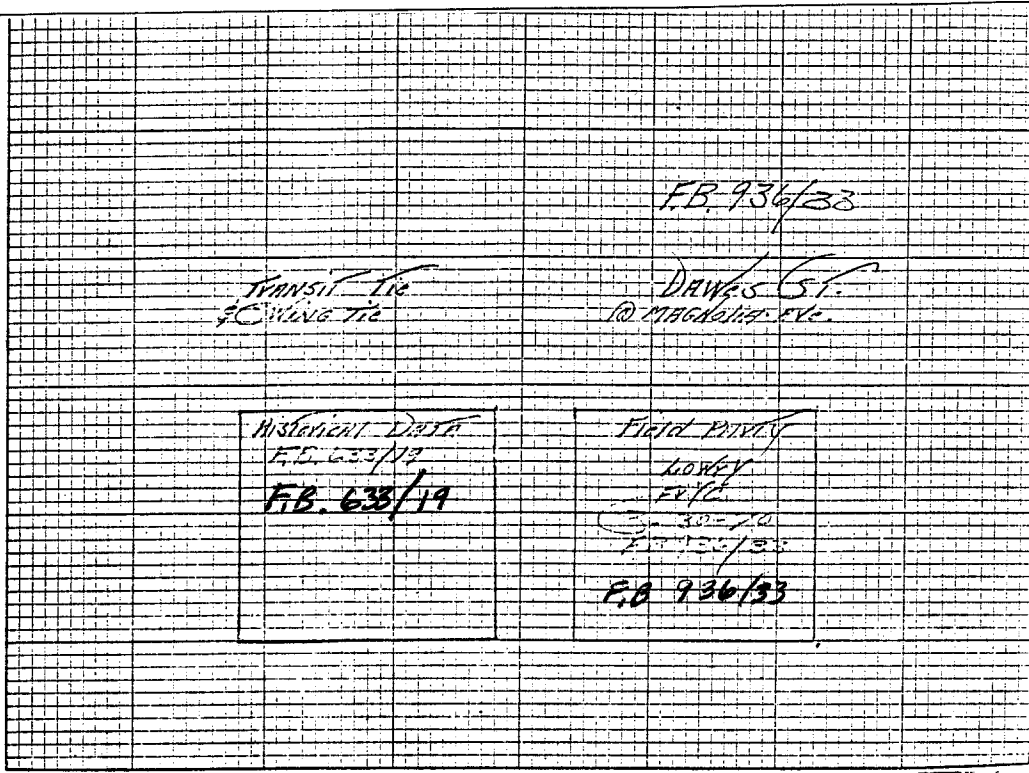 F.B. 936/33
Transit Tie
& Swing Tie
Dawes St.
@ Magnolia Ave.
Historical Data
F.B. 633/19
F.B. 633/19
Field Party
Lowry
30-70
F.B. 936/33
F.B 936/33